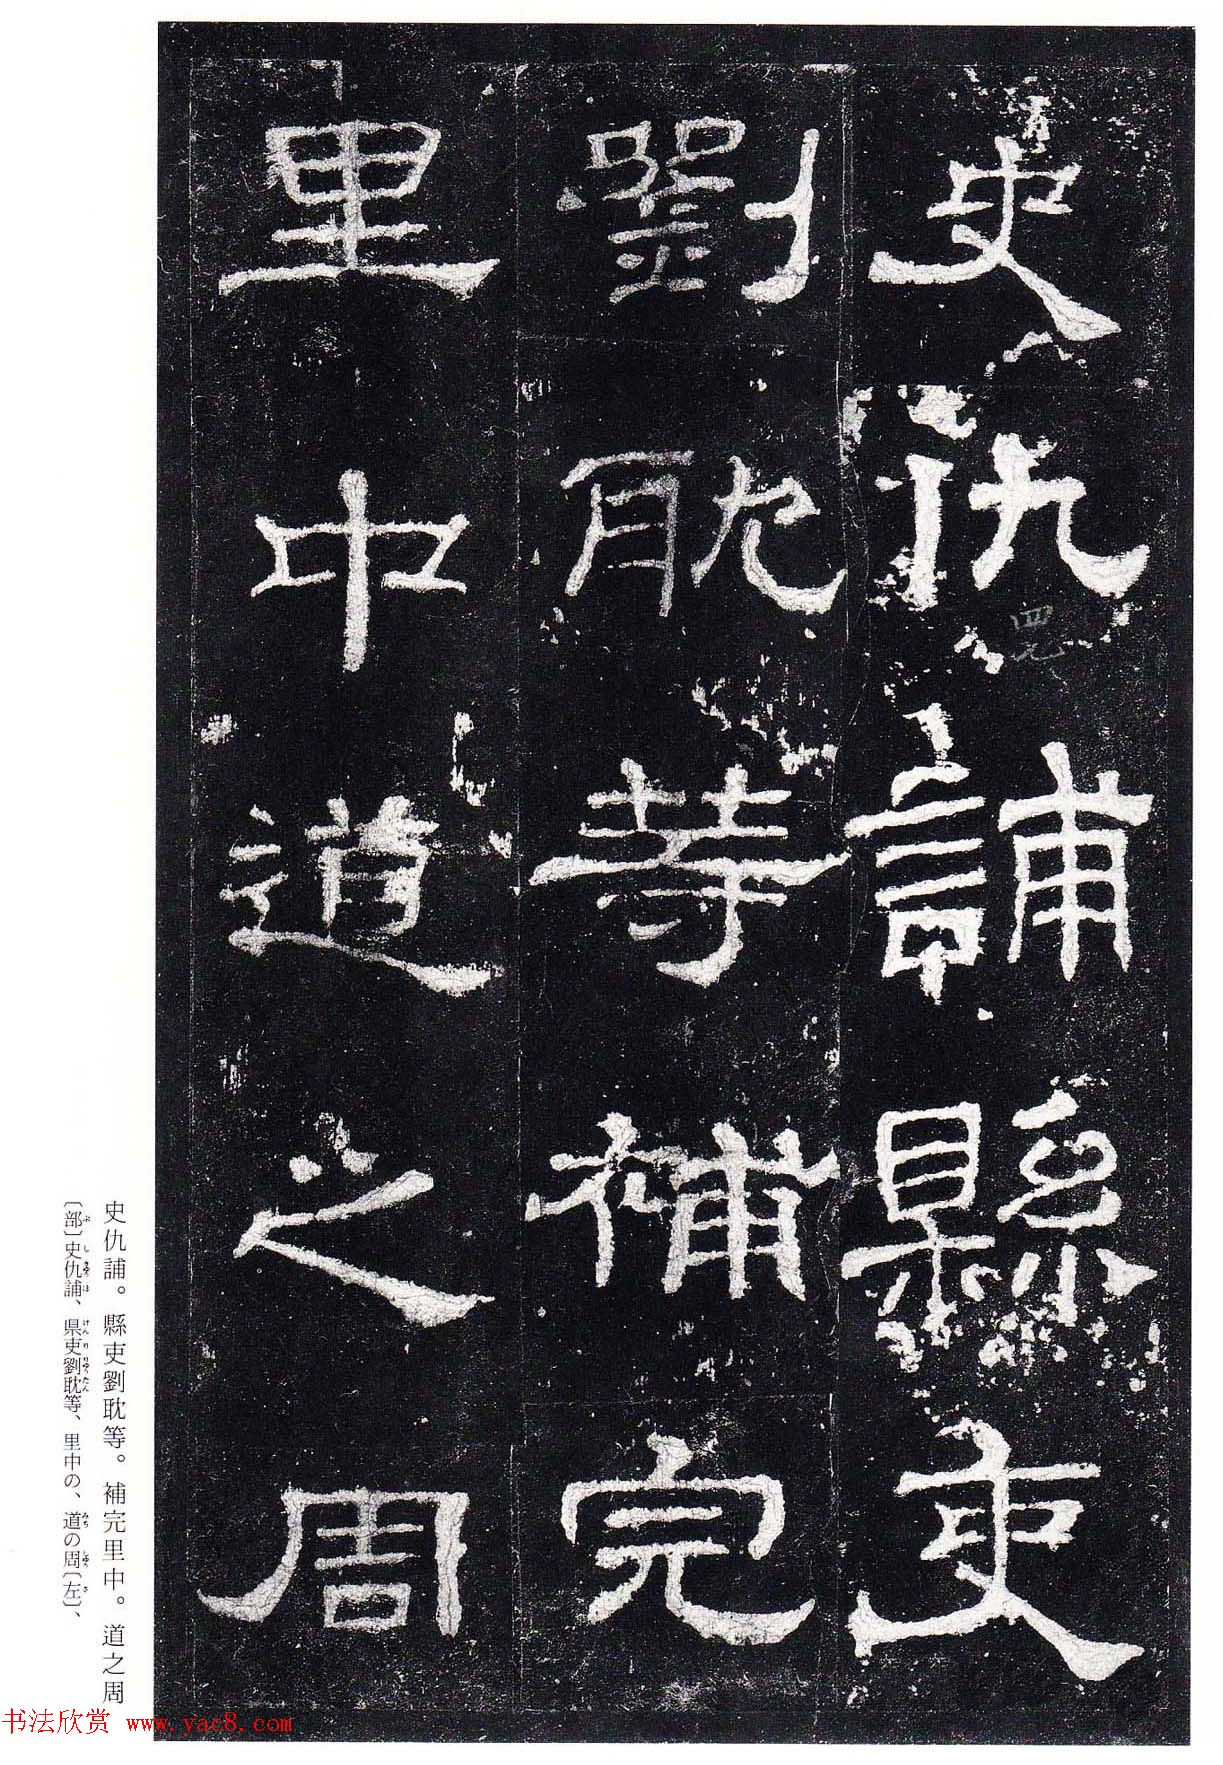 史仇誧縣吏
劉耽等補完
里中道之周
史仇誧。縣吏劉耽等。補完里中。道之周
〔部〕史仇誧、県吏劉耽等、里中の、道の周〔左〕、
书法欣赏 www.yac8.com